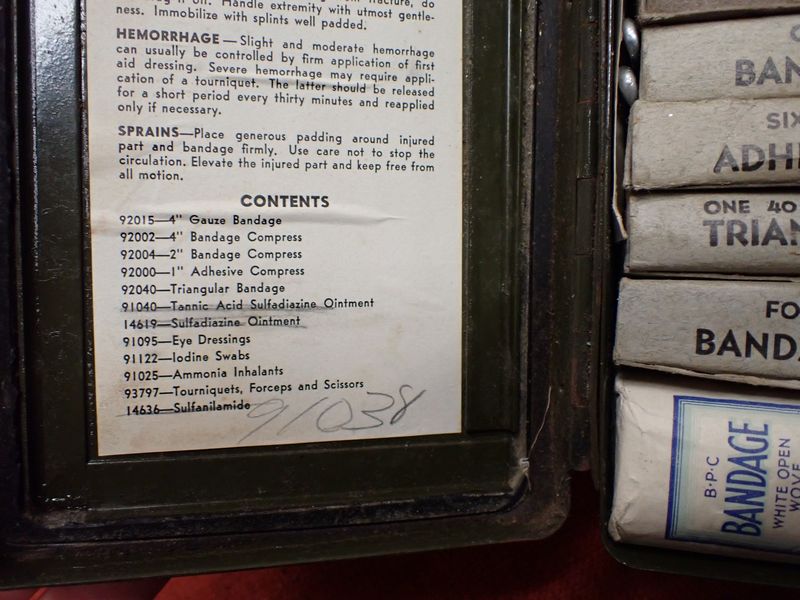 Handle extremity with utmost gentle-
ness. Immobilize with splints well padded.
HEMORRHAGE—Slight and moderate hemorrhage
can usually be controlled by firm application of first
aid dressing. Severe hemorrhage may require appli-
cation of a tourniquet. The latter should be released
for a short period every thirty minutes and reapplied
only if necessary.
SPRAINS—Place generous padding around injured
part and bandage firmly. Use care not to stop the
circulation. Elevate the injured part and keep free from
all motion.
CONTENTS
92015—4" Gauze Bandage
92002—4" Bandage Compress
92004—2" Bandage Compress
92000—1" Adhesive Compress
92040—Triangular Bandage
91040—Tannic Acid Sulfadiazine Ointment
14619—Sulfadiazine Ointment
91095—Eye Dressings
91122—Iodine Swabs
91025—Ammonia Inhalants
93797—Tourniquets, Forceps and Scissors
14636—Sulfanilamide
91038
BAN
SIX
ADHE
ONE 40
TRIAN
FO
BANDA
B·P·C
BANDAGE
WHITE OPEN
WOVE